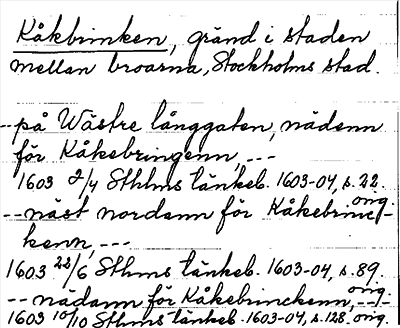 Kåkbrinken, gränd i staden
mellan broarna, Stockholms stad.
--på Wästre långgaten, nädenn
för Kåkebringenn, ---
1603 2/4 Sthlms tänkeb. 1603-04, s. 22.
orig.
--näst nordann för Kåkebrinc-
kenn, ---
1603 22/6 Sthms tänkeb. 1603-04, s. 89.
orig.
--nädann för Kåkebrinckenn, ---
1603 10/10 Sthms tänkeb. 1603-04, s. 128, orig.